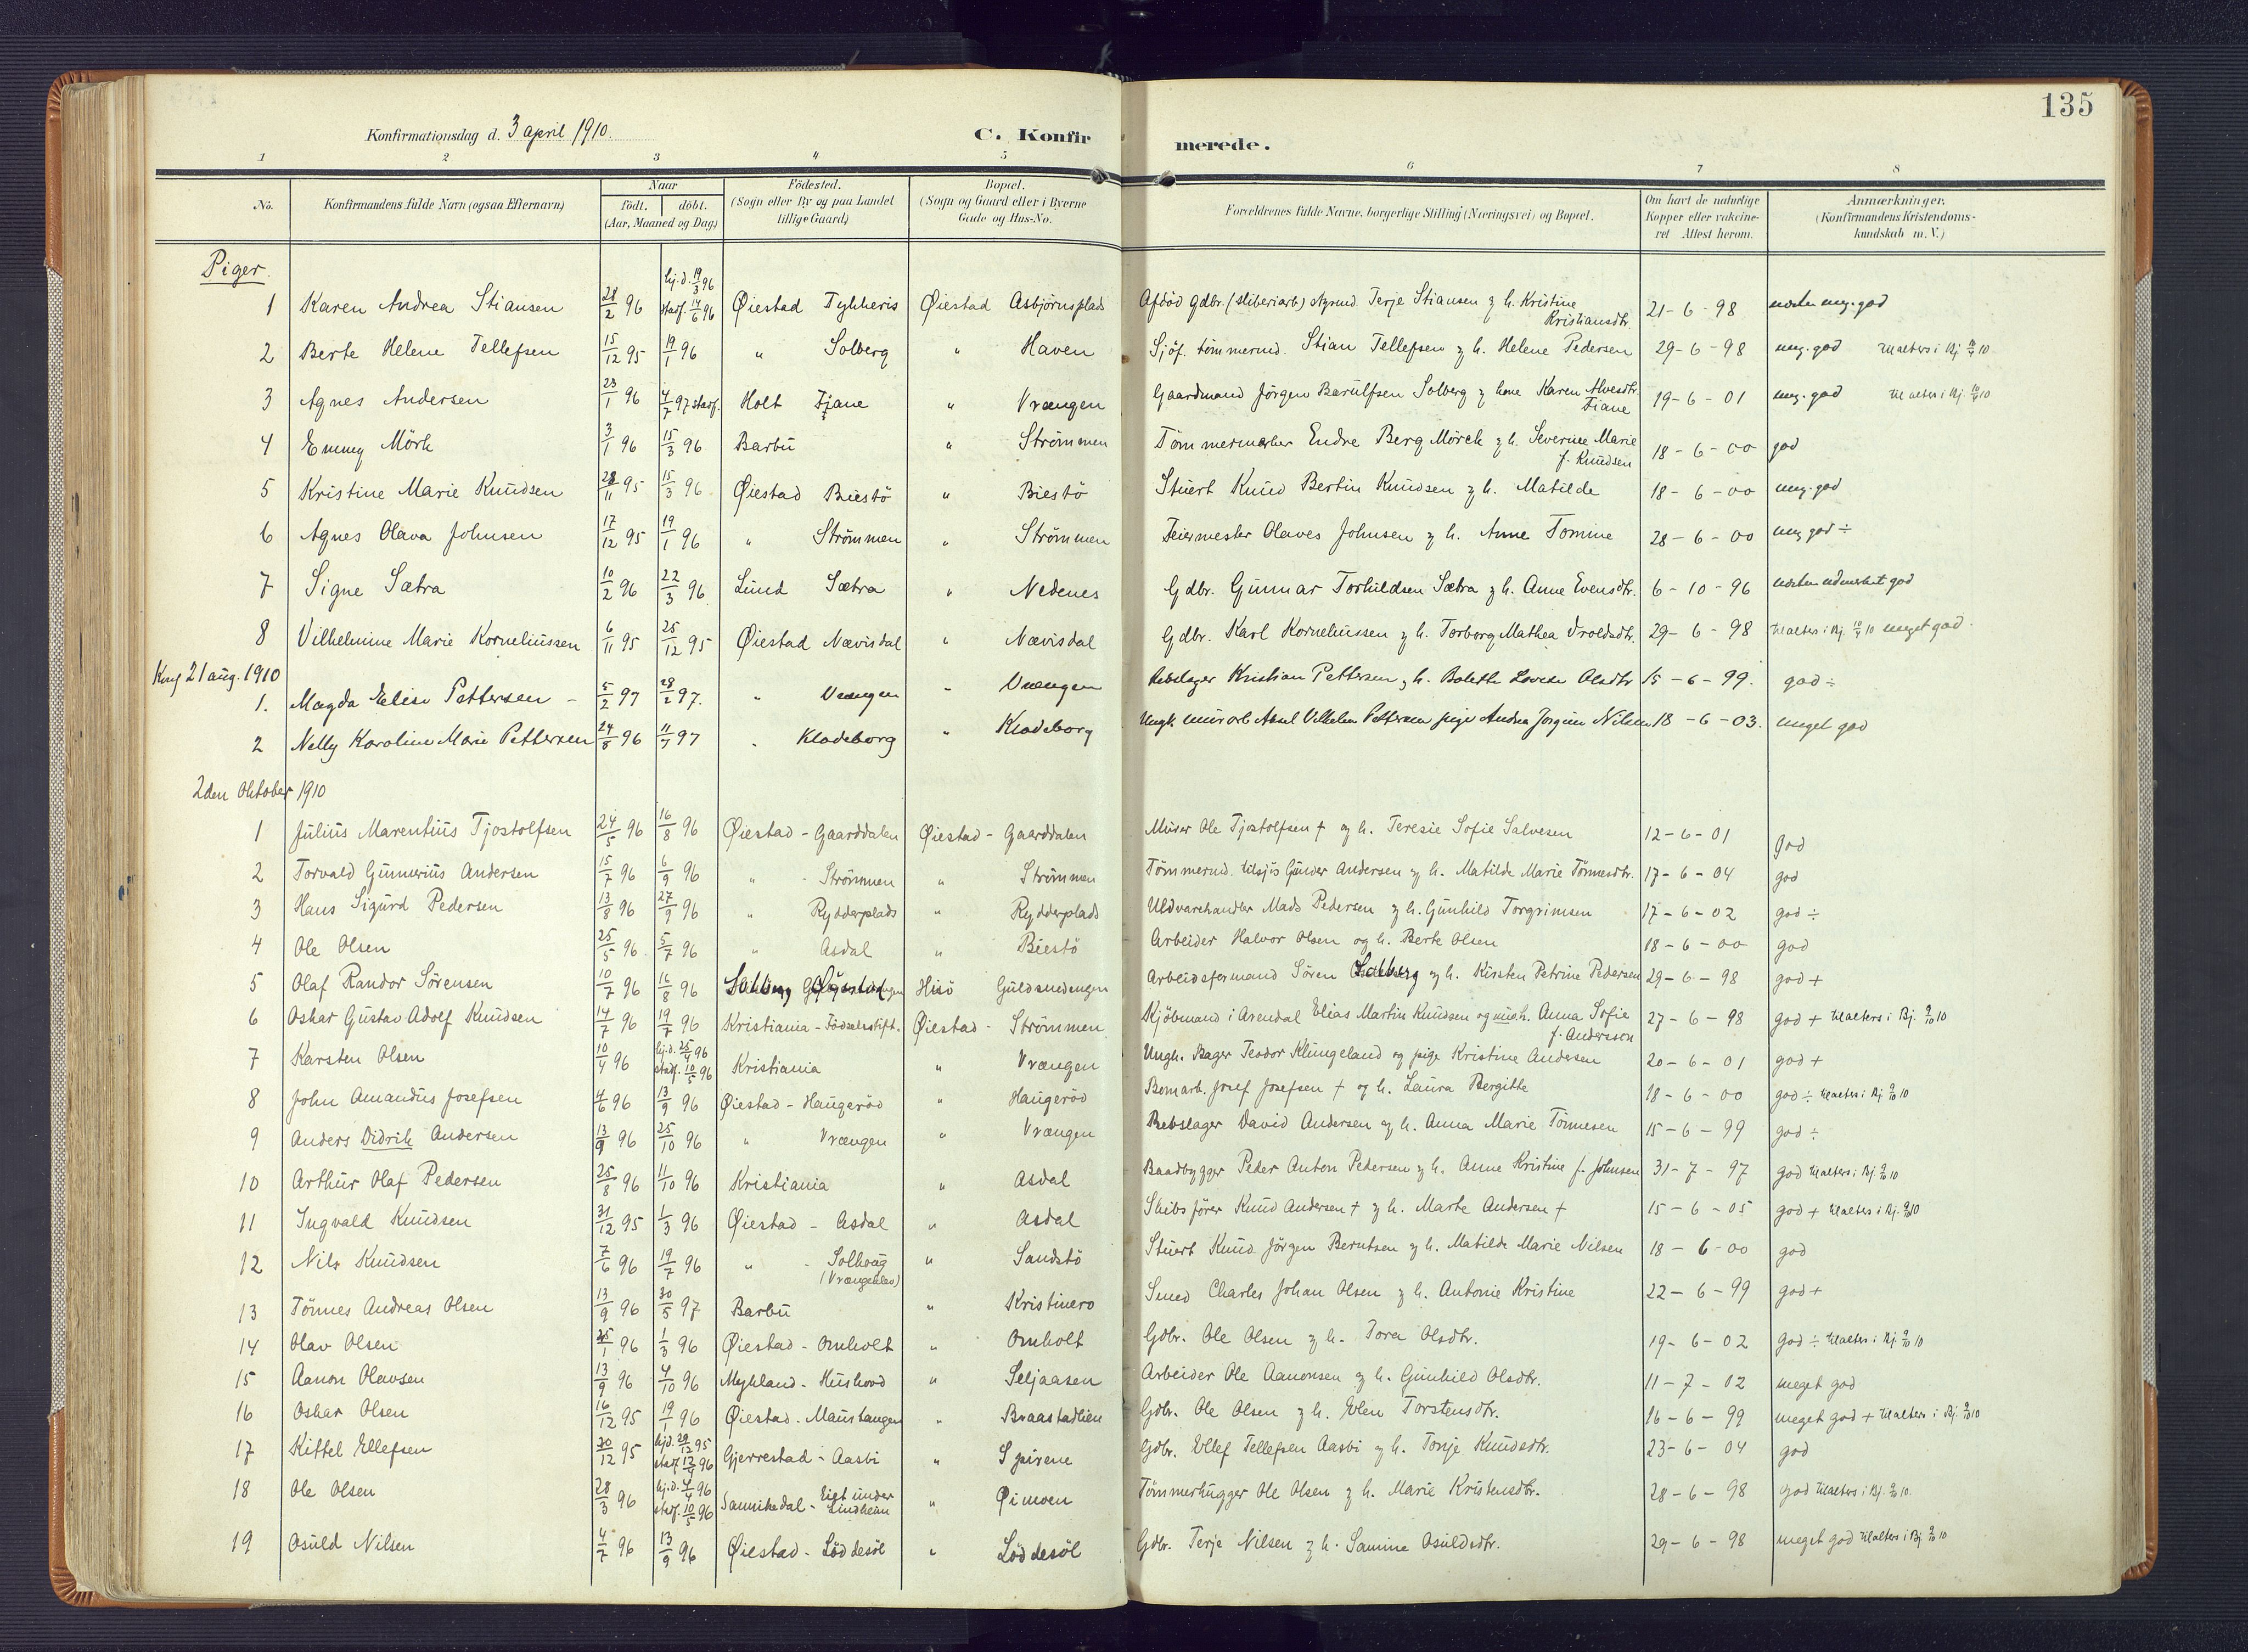 135
Konfirmationsdag d. 3 april 1910. C. Konfir merede.
1 2 3 4 5 6 7 8
No. Konfirmandens fulde Navn (ogsaa Efternavn) Naar födt. döbt. (Aar, Maaned og Dag) Födested. (Sogn eller By og paa Landet tillige Gaard) Bopæl. (Sogn og Gaard eller i Byerne Gade og Hus-No. Forældrenes fulde Navne, borgerlige Stilling (Næringsvei) og Bopæl. Om havt de naturlige Kopper eller vakcineret Attest herom. Anmærkninger. (Konfirmandens Kristendomskundskab m. V.)
Piger.
1 Karen Andrea Stiansen 28/2 96 hj.d. 19/3 96 stadf. 14/6 96 Øiestad Øiestad Asbjørnsplads Afdöd gdbr. Terje Stiansen og h. Kristine Kristiansdtr. 21-6-98 næsten meg. god
2 Berte Helene Tellefsen 15/12 95 19/1 96 " Solberg " Haven Sjöf. tömmermd. Stian Tellefsen og h. Helene Pedersen 29-6-98 meg. god til alters i Bj. 10/4 10
3 Agnes Andersen 23/1 96 4/7 97 stadf. Holt Fiane " Vrængen Gaardmand Jörgen Barulfsen Solberg og Karen Alvesdtr. Fiane 19-6-01 meg. god til alters i Bj. 10/4 10
4 Emmy Mörk 3/1 96 15/3 96 Barbu " Strömmen Tömmermerker Endre Berg Mörck og h. Severine Marie f. Knudsen 18-6-00 god
5 Kristine Marie Knudsen 28/11 95 15/3 96 Øiestad Biestö " Biestö Stuert Knud Bertin Knudsen og h. Matilde 18-6-00 meg. god
6 Agnes Olava Johnsen 17/12 95 19/1 96 " Strömmen " Strömmen Feiermester Olaves Johnsen og h. Anne Tomine 28-6-00 meg god ÷
7 Signe Sætra 10/2 96 22/3 96 Lund Sætra " Nedenes Gdbr. Gunnar Torkildsen Sætra og h. Anne Evensdtr. 6-10-96 næsten udmerket god
8 Vilhelmine Marie Korneliussen 6/11 95 25/12 95 Øiestad Nævisdal " Nævisdal Gdbr. Karl Korneliussen og h. Torborg Mathea 29-6-98 til alters i Bj. 10/4 10 meget god
Konf 21 aug. 1910
1. Magda Elise Pettersen - 5/2 97 28/2 97. " Vrængen " Vrængen Rebslager Kristian Pettersen og h. Bolette Lovise Olsdtr 15-6-99. god ÷
2 Nelly Karoline Marie Pettersen 24/8 96 97 " Klodeborg " Klodeborg Ungk. murarb. Aksel Vilhelm Pettersen pige Andrea Jorgine Nilsen 18-6-03. meget god
2den Oktober 1910
1 Julius Marentius Tjostolfsen 24/5 96 16/8 96 Øiestad - Gaarddalen Øiestad - Gaarddalen Murer Ole Tjostolfsen + og h. Teresie Sofie Salvesen 12-6-01 god
2 Torvald Gunnerius Andersen 15/7 96 6/9 96 " - Strömmen " Strömmen Tömmermd. tilsjös Gunder Andersen og h. Matilde Marie Tönnesdtr. 17-6-04 god
3 Hans Sigurd Pedersen 13/8 96 27/9 96 " Rydderplads " Rydderplads Uldvarehandler Mads Pedersen og h. Gunhild Torgrimsen 17-6-02 god ÷
4 Ole Olsen 25/5 96. 5/7 96 " Asdal " Biestö Arbeider Halvor Olsen og h. Berte Olsen 18-6-00 god
5 Olaf Randor Sörensen 10/7 96 16/8 96 Hisö Guldsmedengen Arbeidsformand Sören Solberg og h. Kirsten Petrine Pedersen 29-6-98 god +
6 Oskar Gustav Adolf Knudsen 14/7 96 19/7 96 Kristiania - Födselsstift. Øiestad - Strömmen Kjöbmand i Arendal Elias Martin Knudsen og h. Anna Sofie f. Andersson 27-6-98 god + til alters i Bj. 9/10 10
7 Karsten Olsen 10/4 96 hj.d. 25/4 96 stadf. 10/5 96 Kristiania " Vrængen Ungk. Bager Teodor Klungeland og pige Kristine Andersen 20-6-01 god +
8 John Amandus Josefsen 4/6 96 13/9 96 Øiestad - Haugeröd " Haugeröd Bomarb. Josef Josefsen + og h. Laura Bergitte 18-6-00 god ÷ til alters i Bj. 9/10 10
9 Anders Didrik Andersen 13/9 96 25/10 96 " Vrængen " Vrængen Rebslager David Andersen og h. Anna Marie Tönnesen 15-6-99 god ÷
10 Arthur Olaf Pedersen 25/8 96 11/10 96 Kristiania " Asdal Baadbygger Peder Anton Pedersen og h. Anne Kristine f. Johnsen 31-7-97 god til alters i Bj 9/10 10
11 Ingvald Knudsen 31/12 95 1/3 96 Øiestad - Asdal " Asdal Skibsförer Knud Andersen + og h. Marte Andersen + 15-6-05 god + til alters i Bj. 9/10 10
12 Nils Knudsen 7/6 96 19/7 96 " - Solhaug (Vrængenkleo) " Sandstö Stuert Knud Jörgen Berntsen og h. Matilde Marie Nilsen 18-6-00 god
13 Tönnes Andreas Olsen 13/9 96 30/5 97 Barbu " Kristinero Smed Charles Johan Olsen og h. Antonie Kristine 22-6-99 god +
14 Olav Olsen 25/1 96 1/3 96 Øiestad - Omholt " Omholt Gdbr. Ole Olsen og h. Tora Olsdtr. 19-6-02 god ÷ til alters i Bj. 9/10 10
15 Aanon Olavsen 13/9 96 4/10 96 Mykland - Hushovd " Seljaasen Arbeider Ole Aanonsen og h. Gunhild Olsdtr. 11-7-02 meget god
16 Oskar Olsen 16/12 95 19/1 96 Øiestad - Maurtangen " Braastadlien Gdbr. Ole Olsen og h. Elen Torstensdtr. 16-6-99 meget god + til alters i Bj. 9/10 10
17 Kittel Ellefsen 95 Gjerrestad - Aasbi " Spirene Gdbr. Ellef Tellefsen Aasbi og h. Tonje Knudsdtr. 23-6-04 god
18 Ole Olsen 28/3 96 hj.d. 4/4 96 stadf. 10/5 96 Sannikedal - Eiet under Lindheim " Øimoen Tömmerhugger Ole Olsen og h. Marie Kristensdtr. 28-6-98 god til alters i Bj. 9/10 10.
19 Osuld Nilsen 4/7 96 13/9 96 Øiestad - Löddesöl " Löddesöl Gdbr. Terje Nilsen og h. Samine Osuldsdtr. 29-6-98 meget god til alters i Bj 9/10 10